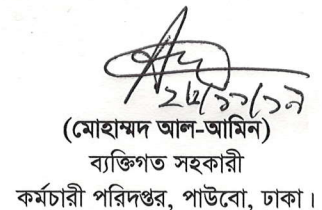 ২৮/১১/১৯
(মোহাম্মদ আল-আমিন)
ব্যক্তিগত সহকারী
কর্মচারী পরিদপ্তর, পাউবো, ঢাকা।